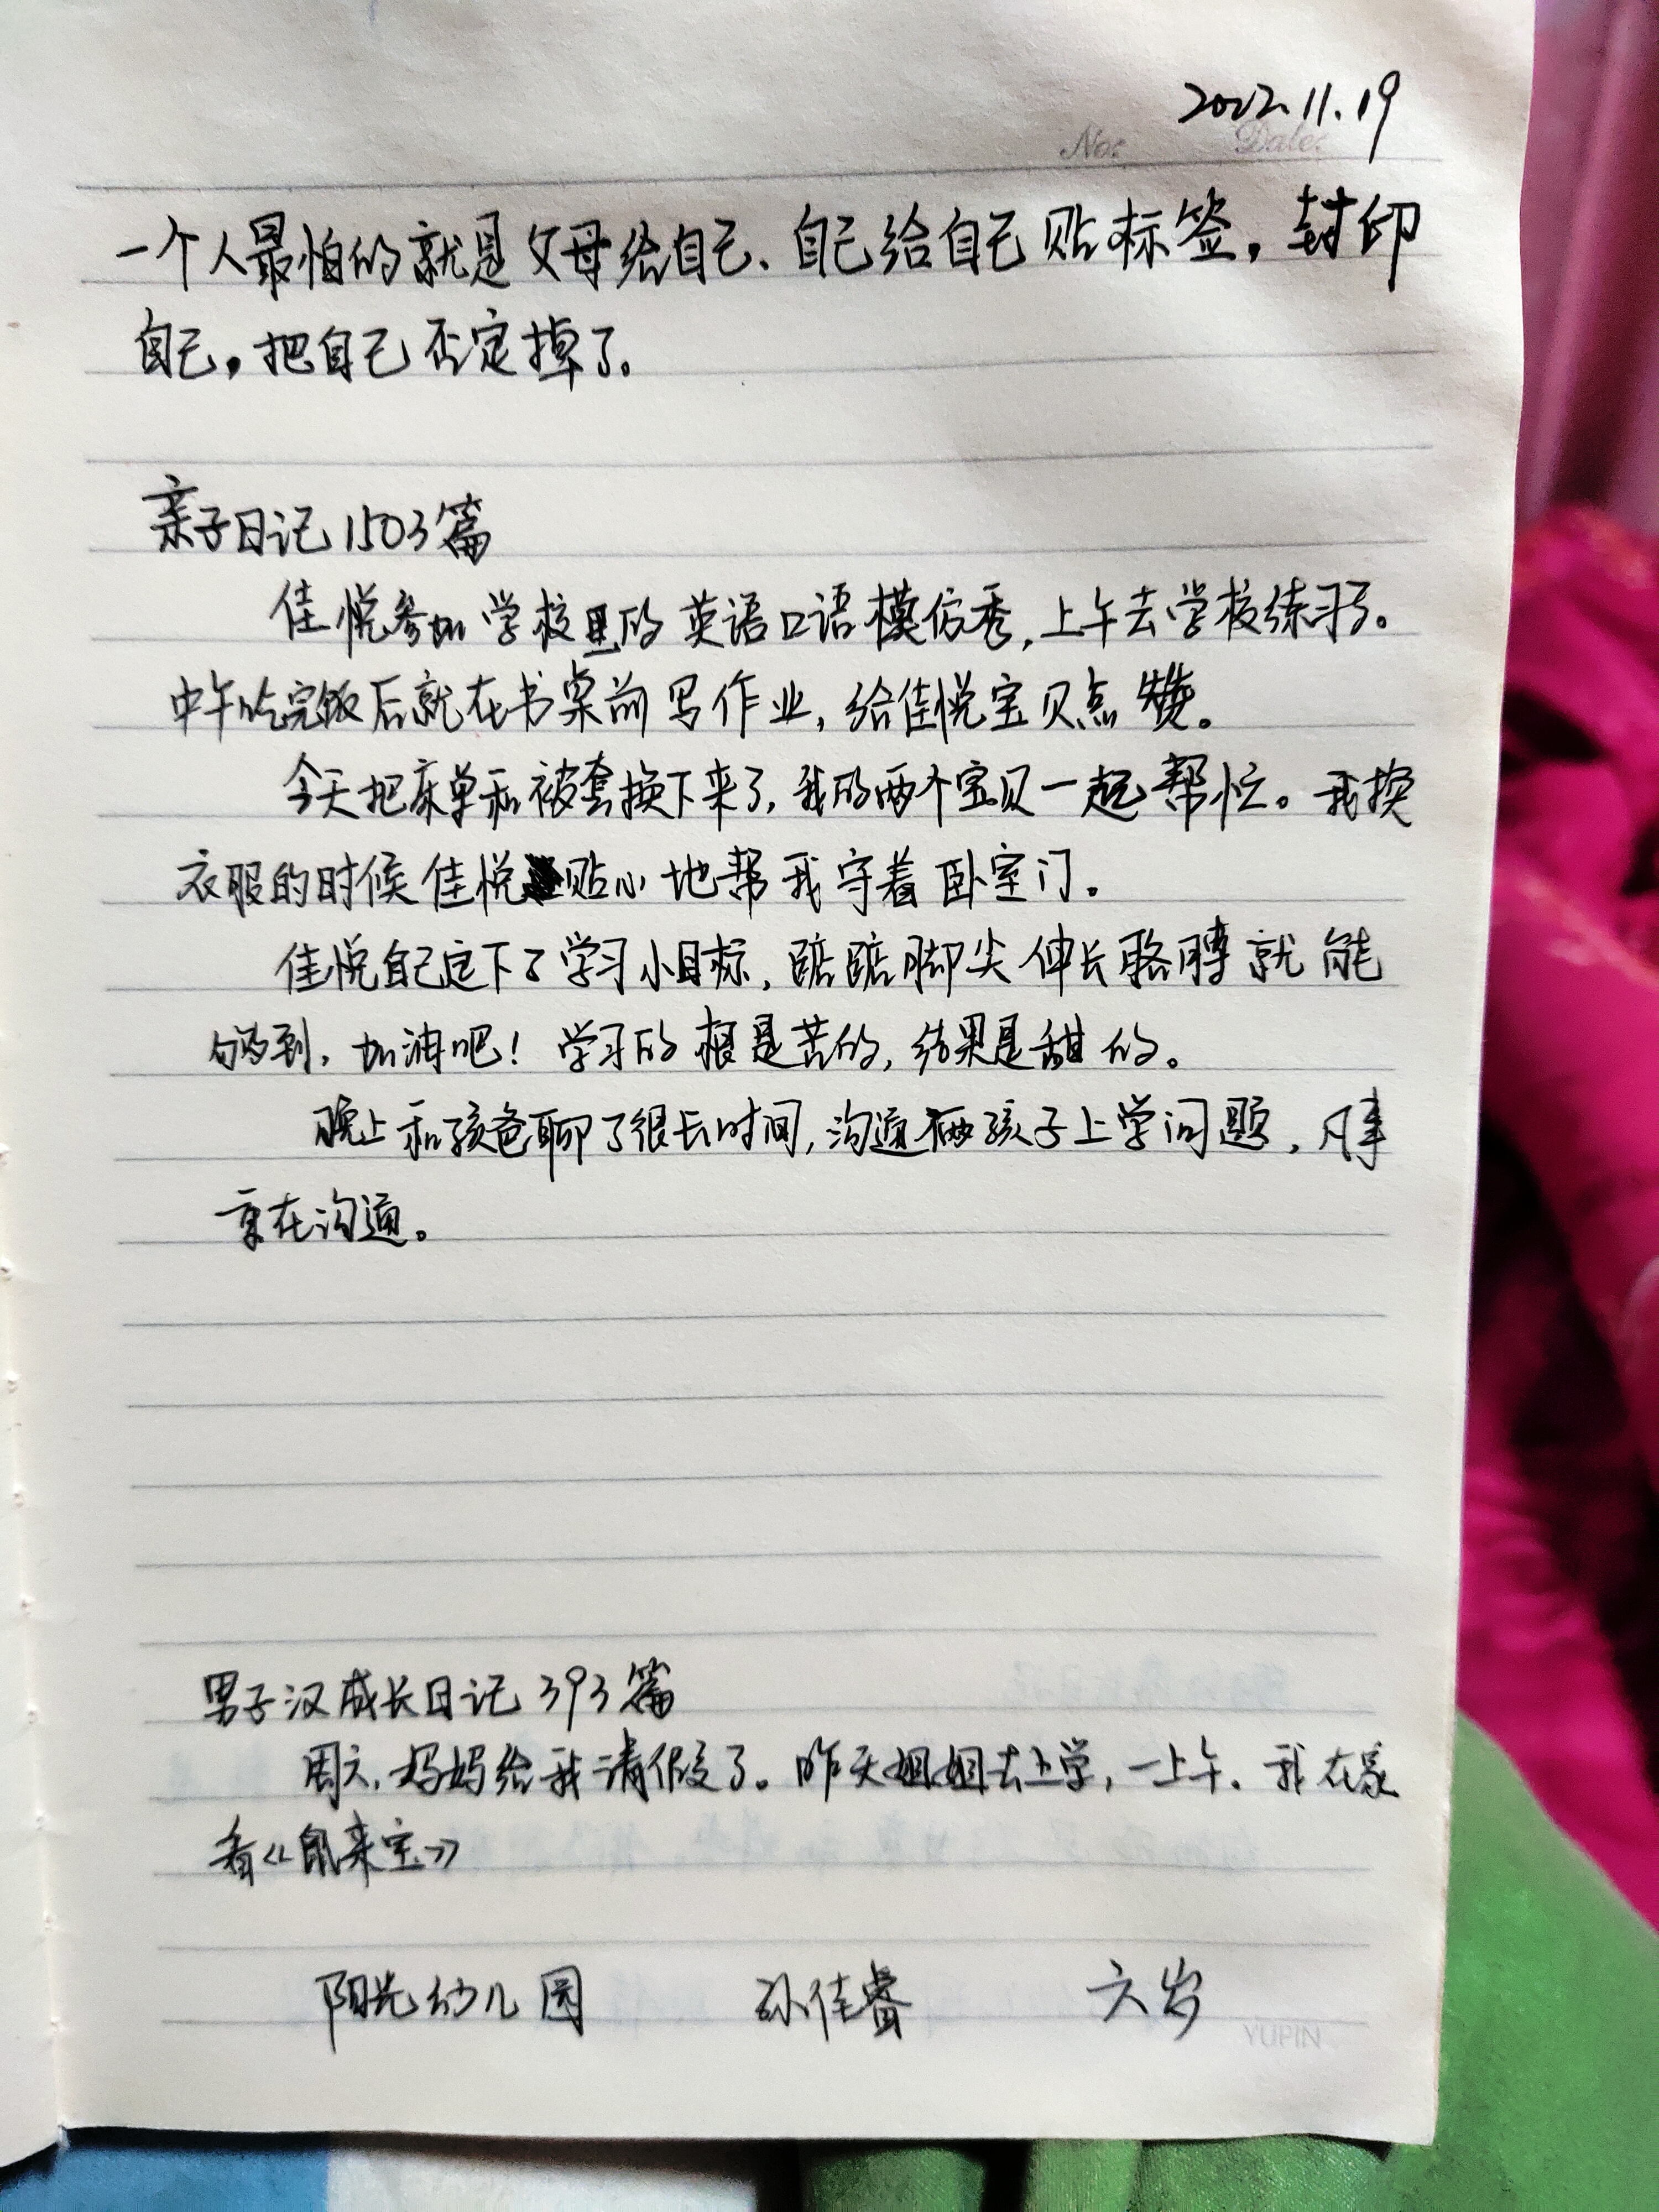 2022.11.19
No:  Date:
一个人最怕的就是父母给自己、自己给自己贴标签,封印
自己,把自己否定掉了.
亲子日记1503篇
佳悦参加学校里的英语口语模仿秀,上午去学校练习了。
中午吃完饭后就在书桌前写作业,给佳悦宝贝点赞。
今天把床单和被套换下来了,我的两个宝贝一起帮忙。我换
衣服的时候佳悦贴心地帮我守着卧室门。
佳悦自己定下了学习小目标,踮踮脚尖伸长胳膊就能
够到,加油吧!学习的根是苦的,结果是甜的。
晚上和孩爸聊了很长时间,沟通俩孩子上学问题,凡事
贵在沟通。
男子汉成长日记393篇
周六,妈妈给我请假了。昨天姐姐去上学,一上午.我在家
看《鼠来宝》
阳光幼儿园 孙佳睿 六岁
YUPIN